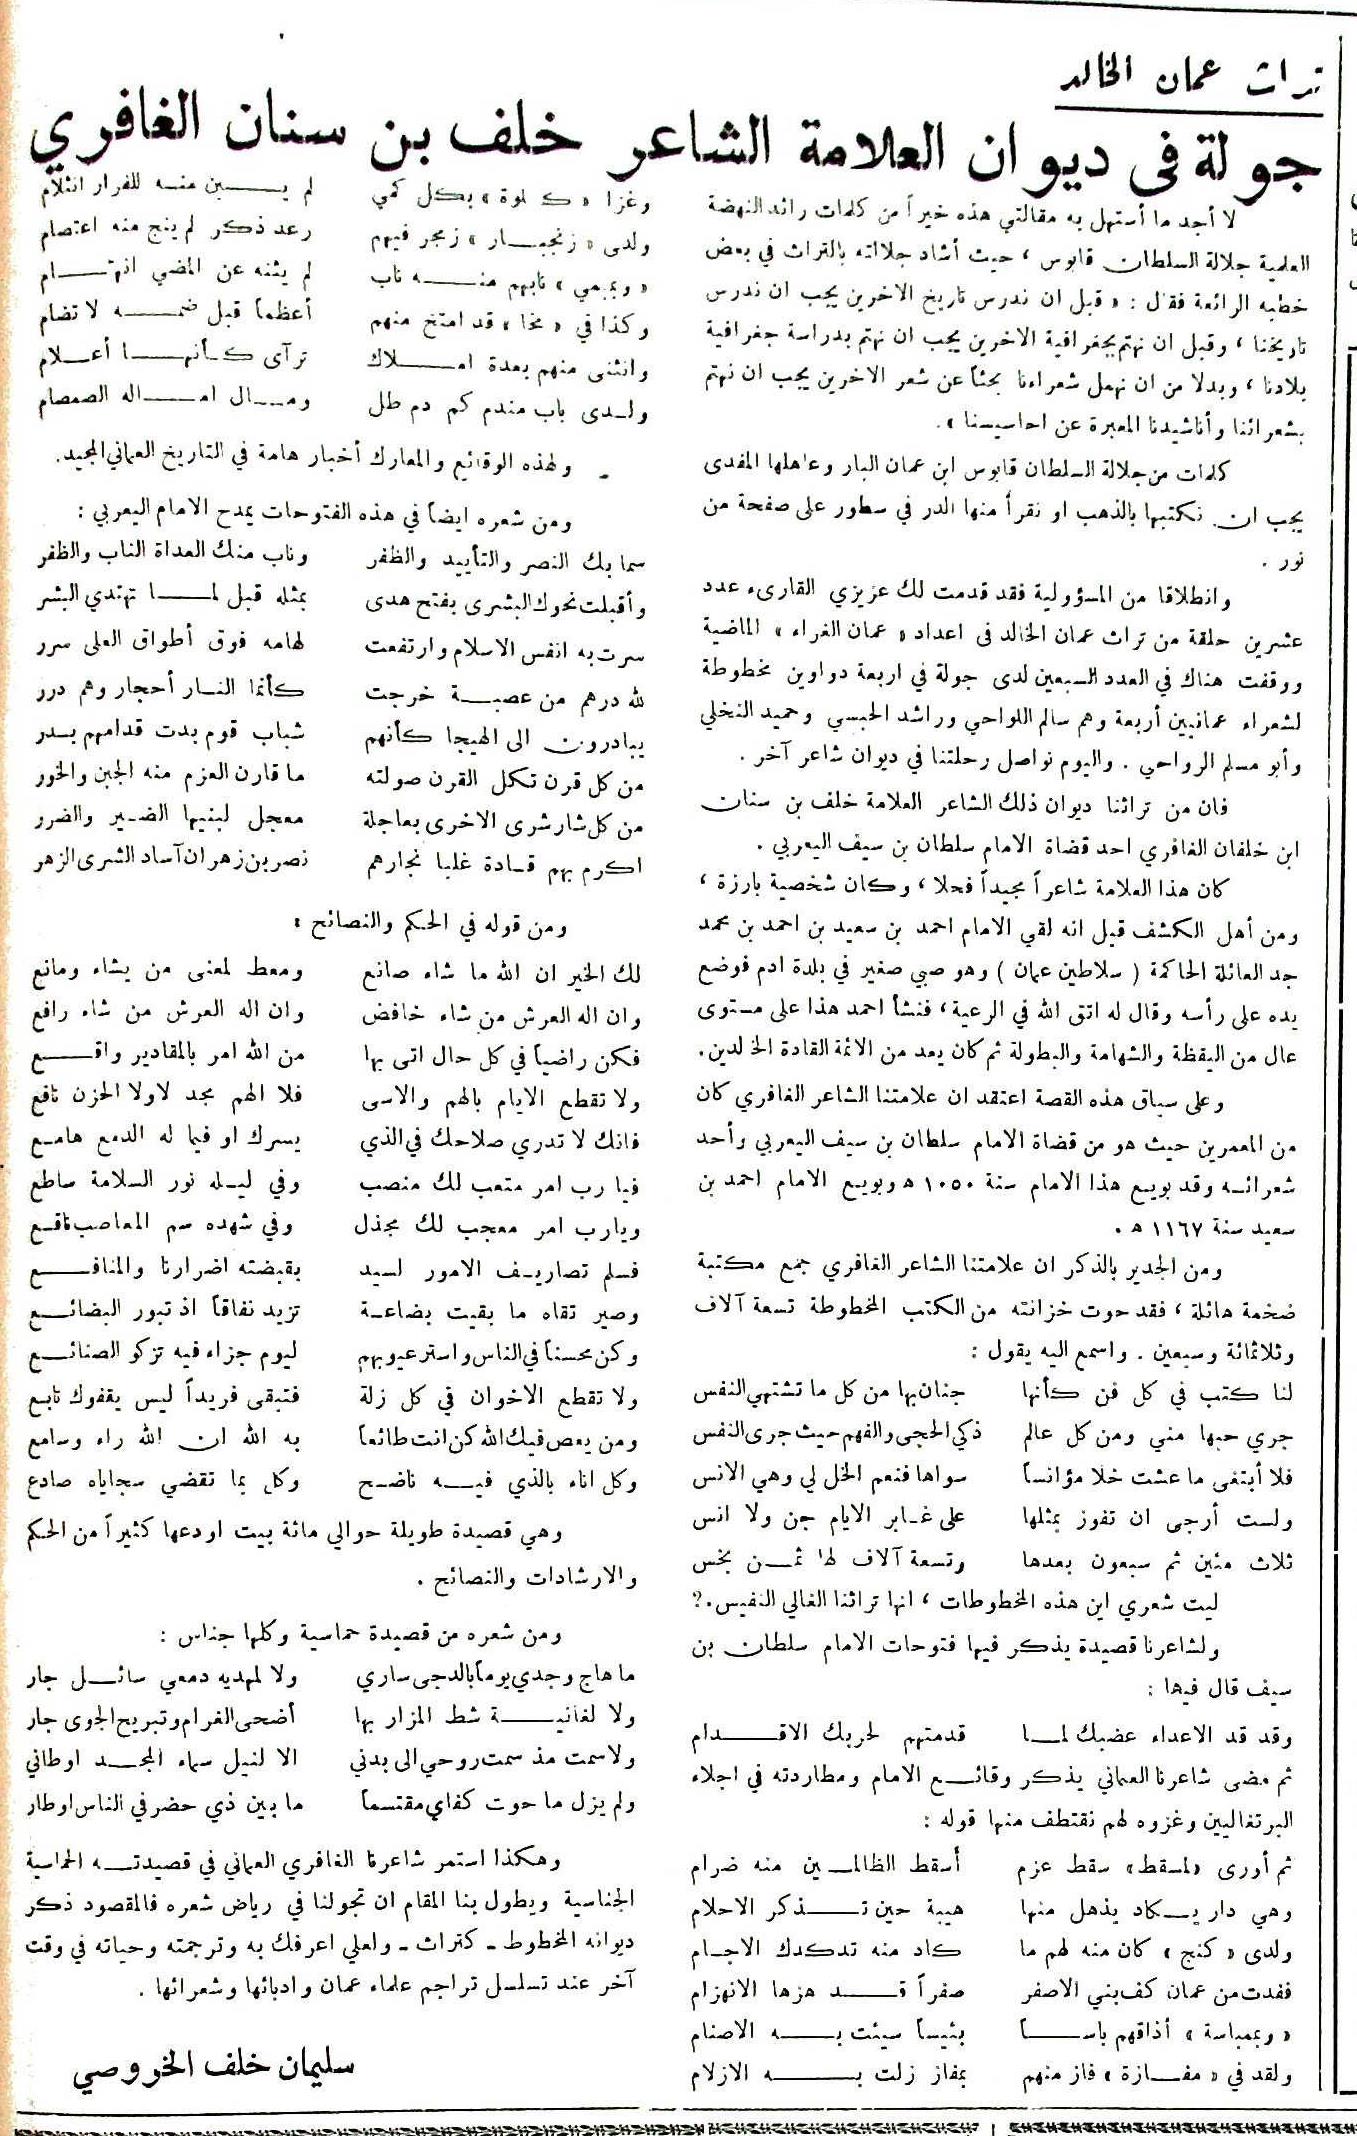 تراث عمان الخالد
جولة في ديوان العلامة الشاعر خلف بن سنان الغافري
لا أجد ما أستهل به مقالتي هذه خيراً من كلمات رائد النهضة
العلمية جلالة السلطان قابوس ، حيث أشاد جلالته بالتراث في بعض
خطبه الرائعة فقال : « قبل ان ندرس تاريخ الاخرين يجب ان ندرس
تاريخنا ، وقبل ان نهتم بجغرافية الاخرين يجب ان نهتم بدراسة جغرافية
بلادنا ، وبدلا من ان نهمل شعراءنا بحثاً عن شعر الاخرين يجب ان نهتم
بشعرائنا وأناشيدنا المعبرة عن احاسيسنا » .
كلمات من جلالة السلطان قابوس ابن عمان البار وعاهلها المفدى
يجب ان نكتبها بالذهب او نقرأ منها الدر في سطور على صفحة من
نور .
وانطلاقا من المسؤولية فقد قدمت لك عزيزي القارىء عدد
عشرين حلقة من تراث عمان الخالد في اعداد « عمان الغراء » الماضية
ووقفت هناك في العدد السبعين لدى جولة في اربعة دواوين مخطوطة
لشعراء عمانيين أربعة وهم سالم اللواحي وراشد الحبسي وحميد النخلي
وأبو مسلم الرواحي . واليوم نواصل رحلتنا في ديوان شاعر آخر .
فان من تراثنا ديوان ذلك الشاعر العلامة خلف بن سنان
ابن خلفان الغافري احد قضاة الامام سلطان بن سيف اليعربي .
كان هذا العلامة شاعراً مجيداً فحلا ، وكان شخصية بارزة ،
ومن أهل الكشف قيل انه لقي الامام احمد بن سعيد بن احمد بن محمد
جد العائلة الحاكمة ( سلاطين عمان ) وهو صبي صغير في بلدة ادم فوضع
يده على رأسه وقال له اتق الله في الرعية ، فنشأ احمد هذا على مستوى
عال من اليقظة والشهامة والبطولة ثم كان يعد من الائمة القادة الخالدين .
وعلى سياق هذه القصة اعتقد ان علامتنا الشاعر الغافري كان
من المعمرين حيث هو من قضاة الامام سلطان بن سيف اليعربي وأحد
شعرائه وقد بويع هذا الامام سنة ١٠٥٠ ه وبويع الامام احمد بن
سعيد سنة ١١٦٧ ه .
ومن الجدير بالذكر ان علامتنا الشاعر الغافري جمع مكتبة
ضخمة هائلة ، فقد حوت خزانته من الكتب المخطوطة تسعة آلاف
وثلاثمائة وسبعين . واسمع اليه يقول :
لنا كتب في كل فن كأنها جنان بها من كل ما تشتهي النفس
جرى حبها مني ومن كل عالم ذكي الحجى والفهم حيث جرى النفس
فلا أبتغي ما عشت خلا مؤانساً سواها فنعم الخل لي وهي الانس
ولست أرجى ان تفوز بمثلها على غابر الايام جن ولا انس
ثلاث مئين ثم سبعون بعدها وتسعة آلاف لها ثمن بخس
ليت شعري اين هذه المخطوطات ، انها تراثنا الغالي النفيس .؟
ولشاعرنا قصيدة يذكر فيها فتوحات الامام سلطان بن
سيف قال فيها :
وقد قد الاعداء عضبك لما قدمتهم لحربك الاقدام
ثم مضى شاعرنا العماني يذكر وقائع الامام ومطاردته في اجلاء
البرتغاليين وغزوه لهم نقتطف منها قوله :
ثم أورى «لمسقط» سقط عزم أسقط الظالمين منه ضرام
وهي دار يكاد يذهل منها هيبة حين تذكر الاحلام
ولدى « كنج » كان منه لهم ما كاد منه تدكدك الاجام
ففدت من عمان كف بني الاصفر صفراً قد هزها الانهزام
« وبمباسة » أذاقهم باساً بئيساً سيئت به الاصنام
ولقد في « مفازة » فاز منهم بمفاز زلت به الازلام
وغزا « كلوة » بكل كمي لم يبن منه للفرار انثلام
ولدى « زنجبار » زمجر فيهم رعد ذكر لم ينج منه اعتصام
« وبمبي » نابهم منه ناب لم يثنه عن المضي انهتام
وكذا في « مخا » قد امتخ منهم أعظماً قبل ضمه لا تضام
وانثنى منهم بعدة املاك ترآى كأنها أعلام
ولدى باب مندم كم دم طل ومال اماله الصمصام
ولهذه الوقائع والمعارك أخبار هامة في التاريخ العماني المجيد .
ومن شعره ايضاً في هذه الفتوحات يمدح الامام اليعربي :
سما بك النصر والتأييد والظفر وناب منك العداة الناب والظفر
وأقبلت نحوك البشرى بفتح هدى بمثله قبل لما تهتدي البشر
سرت به انفس الاسلام وارتفعت لهامه فوق أطواق العلى سرر
لله درهم من عصبة خرجت كأنما النار أحجار وهم درر
يبادرون الى الهيجا كأنهم شباب قوم بدت قدامهم بدر
من كل قرن تكل القرن صولته ما قارن العزم منه الجبن والخور
من كل شار شرى الاخرى بعاجلة معجل لبنيها الضير والضرر
اكرم بهم قادة غلبا نجارهم نصر بن زهران آساد الشرى الزهر
ومن قوله في الحكم والنصائح :
لك الخير ان الله ما شاء صانع ومعط لمعنى من يشاء ومانع
وان اله العرش من شاء خافض وان اله العرش من شاء رافع
فكن راضياً في كل حال اتى بها من الله امر بالمقادير واقع
ولا تقطع الايام بالهم والاسى فلا الهم مجد لا ولا الحزن نافع
فانك لا تدري صلاحك في الذي يسرك او فيما له الدمع هامع
فيا رب امر متعب لك منصب وفي ليله نور السلامة ساطع
ويا رب امر معجب لك مجذل وفي شهده سم المعاصب ناقع
فسلم تصاريف الامور لسيد بقبضته اضرارنا والمنافع
وصير تقاه ما بقيت بضاعة تزيد نفاقاً اذ تبور البضائع
وكن محسناً في الناس واسترعيوبهم ليوم جزاء فيه تزكو الصنائع
ولا تقطع الاخوان في كل زلة فتبقى فريداً ليس يقفوك تابع
ومن يعص فيك الله كن انت طائعاً به الله ان الله راء وسامع
وكل اناء بالذي فيه ناضح وكل بما تقضي سجاياه صادع
وهي قصيدة طويلة حوالي مائة بيت اودعها كثيراً من الحكم
والارشادات والنصائح .
ومن شعره من قصيدة حماسية وكلها جناس :
ما هاج وجدي يوماً بالدجى ساري ولا لمهديه دمعي سائل جار
ولا لغانية شط المزار بها أضحى الغرام وتبريح الجوى جار
ولا سمت مذ سمت روحي الى بدني الا لنيل سماء المجد اوطاني
ولم يزل ما حوت كفاي مقتسماً ما بين ذي حضر في الناس اوطار
وهكذا استمر شاعرنا الغافري العماني في قصيدته الحماسية
الجناسية ويطول بنا المقام ان تجولنا في رياض شعره فالمقصود ذكر
ديوانه المخطوط - كتراث - ولعلي اعرفك به وترجمته وحياته في وقت
آخر عند تسلسل تراجم علماء عمان وادبائها وشعرائها .
سليمان خلف الخروصي